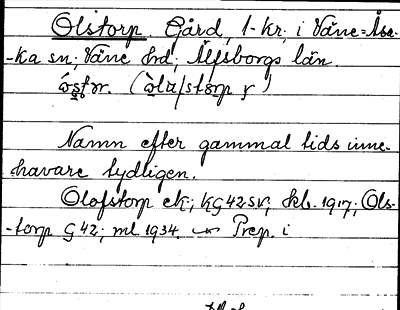 Olstorp. Gård, 1-kr; i Väne=Åsa-
-ka sn; Väne hd; Älfsborgs län.
Namn efter gammal tids inne-
havare tydligen.
Olofstorp ek; KG 42 SV; skb. 1917; Ols-
-torp G 42; ml 1934. Prep. i